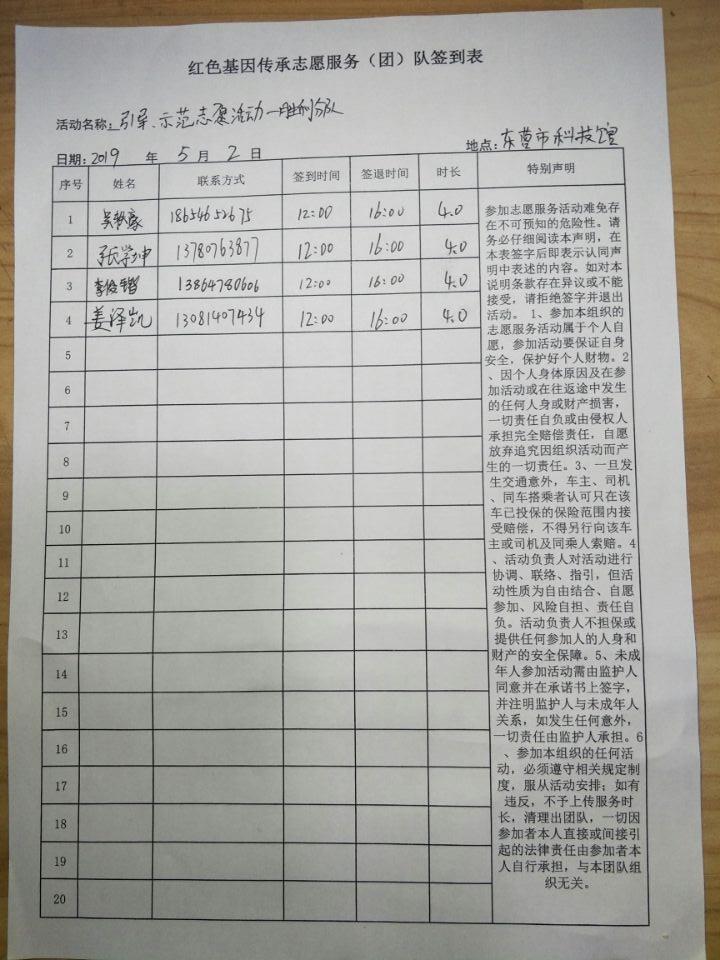 红色基因传承志愿服务（团）队签到表
活动名称：引导、示范志愿活动—胜利分队
日期：2019 年 5 月 2 日 地点：东营市科技馆
序号 姓名 联系方式 签到时间 签退时间 时长 特别声明
1 18654652675 12:00 16:00 4.0
2 张学坤 13780763877 12:00 16:00 4.0
3 13864780606 12:00 16:00 4.0
4 姜泽凯 13081407434 12:00 16:00 4.0
5
6
7
8
9
10
11
12
13
14
15
16
17
18
19
20
参加志愿服务活动难免存
在不可预知的危险性。请
务必仔细阅读本声明，在
本表签字后即表示认同声
明中表述的内容。如对本
说明条款存在异议或不能
接受，请拒绝签字并退出
活动。 1、参加本组织的
志愿服务活动属于个人自
愿，参加活动要保证自身
安全，保护好个人财物。2
、因个人身体原因及在参
加活动或在往返途中发生
的任何人身或财产损害，
一切责任自负或由侵权人
承担完全赔偿责任，自愿
放弃追究因组织活动而产
生的一切责任。3、一旦发
生交通意外，车主、司机
、同车搭乘者认可只在该
车已投保的保险范围内接
受赔偿，不得另行向该车
主或司机及同乘人索赔。4
、活动负责人对活动进行
协调、联络、指引，但活
动性质为自由结合、自愿
参加、风险自担、责任自
负。活动负责人不担保或
提供任何参加人的人身和
财产的安全保障。5、未成
年人参加活动需由监护人
同意并在承诺书上签字，
并注明监护人与未成年人
关系，如发生任何意外，
一切责任由监护人承担。6
、参加本组织的任何活
动，必须遵守相关规定制
度，服从活动安排；如有
违反，不予上传服务时
长，清理出团队，一切因
参加者本人直接或间接引
起的法律责任由参加者本
人自行承担，与本团队组
织无关。